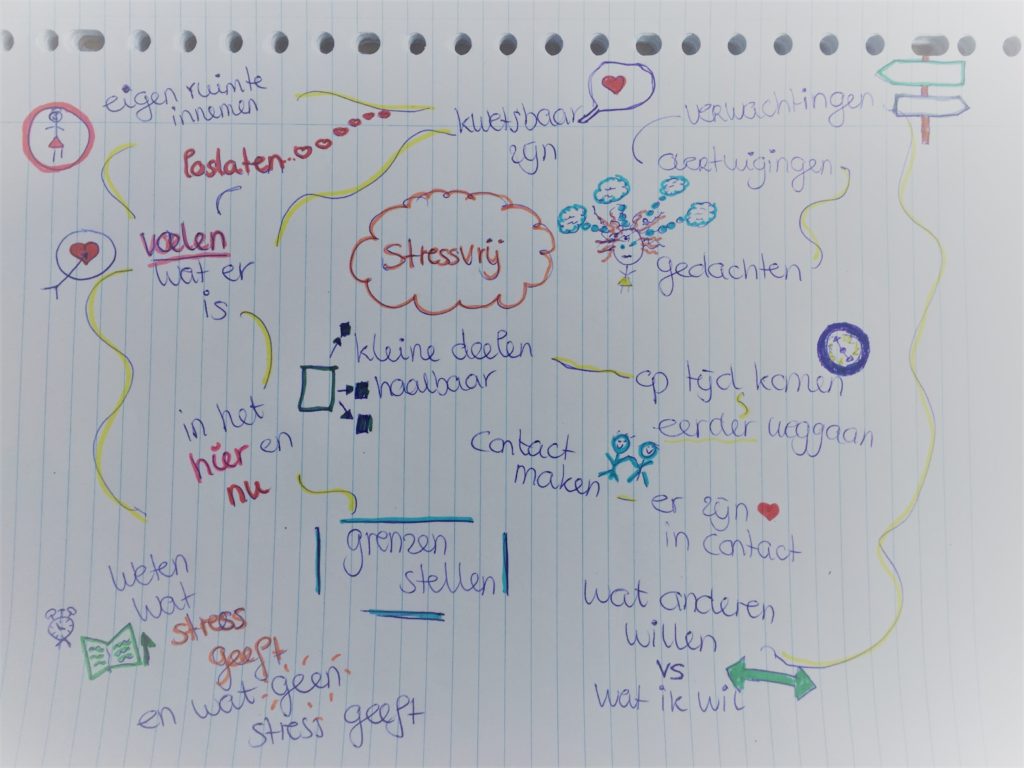 eigen ruimte
innemen
loslaten
kwetsbaar
zijn
verwachtingen
overtuigingen
gedachten
voelen
wat er
is
stressvrij
kleine deelen
haalbaar
op tijd komen
eerder weggaan
in het
hier en
nu
contact
maken
er zijn
in contact
grenzen
stellen
weten
wat
stress
geeft
en wat geen
stress geeft
wat anderen
willen
vs
wat ik wil